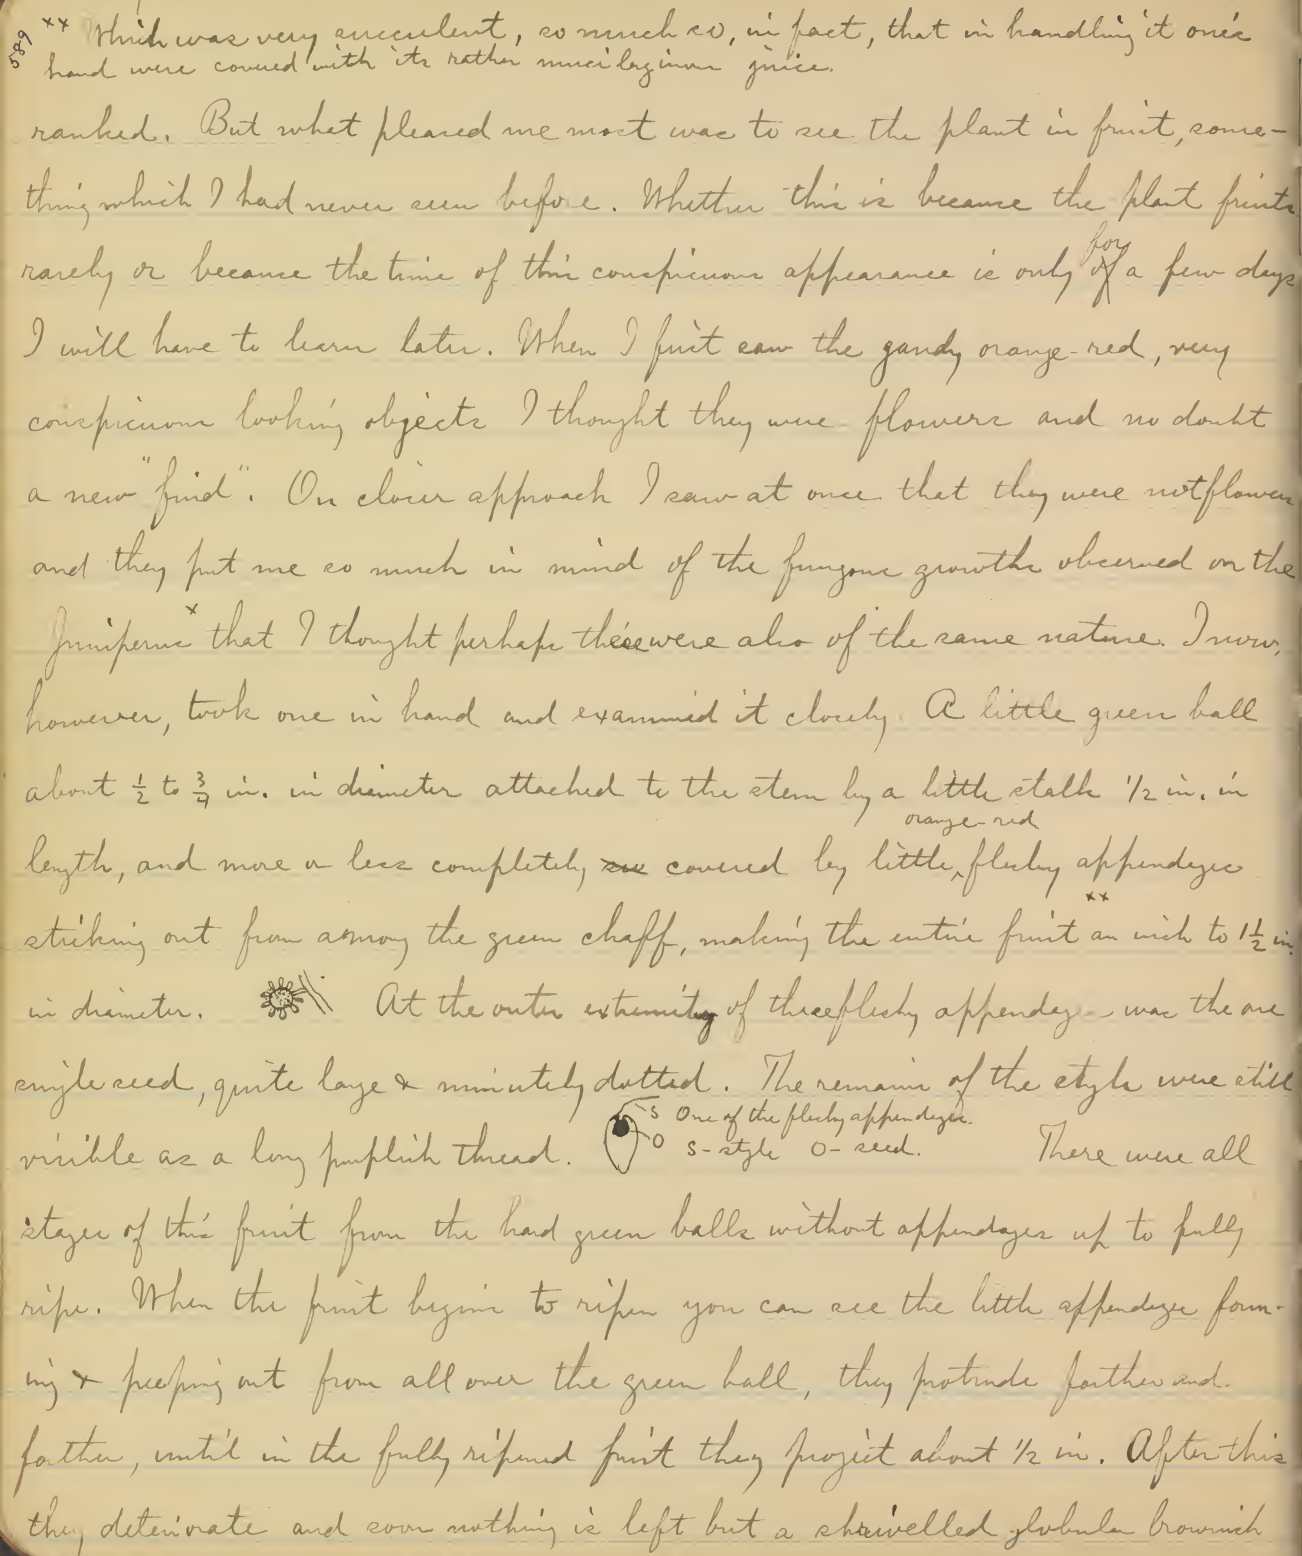 589
xx Which was very succulent, so much so, in fact, that in handling it one's
hand were covered with its rather mucilaginous juice.
ranked. But what pleased me most was to see the plant in fruit, some-
thing which I had never seen before. Whether this is because the plant fruits
rarely or because the time of this conspicuous appearance is only for a few days
I will have to learn later. When I first saw the gaudy orange-red, very
conspicuous looking objects I thought they were flowers and no doubt
a new "find". On closer approach I saw at once that they were not flowers
and they put me so much in mind of the fungous growths observed on the
Juniperus x that I thought perhaps these were also of the same nature. I now,
however, took one in hand and examined it closely. A little green ball
about 1/2 to 3/4 in. in diameter attached to the stem by a little stalk 1/2 in. in
length, and more or less completely covered by little, orange-red fleshy appendages
striking out from among the green chaff, making the entire fruit xx an inch to 1 1/2 in.
in diameter. At the outer extremity of these fleshy appendages was the one
single seed, quite large & minutely dotted. The remains of the style were still
visible as a long purplish thread. S O One of the fleshy appendages. S- style O- seed. There were all
stages of this fruit from the hard green balls without appendages up to fully
ripe. When the fruit begins to ripen you can see the little appendages form-
ing & peeping out from all over the green ball, they protrude farther and
farther, until in the fully ripened fruit they project about 1/2 in. After this
they deteriorate and soon nothing is left but a shrivelled globular brownish